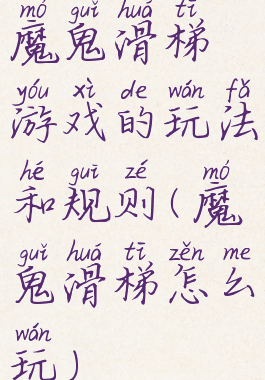 mó guǐ huá tī
魔鬼滑梯
yóu xì de wán fǎ
游戏的玩法
hé guī zé mó
和规则(魔
guǐ huá tī zěn me
鬼滑梯怎么
wán
玩)